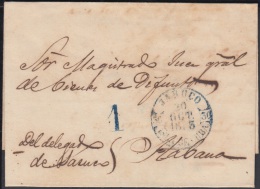 Sor Magistrado Juez gral
de Vienes de Difuntos
JARUCO
1
Del delegado
de Jaruco
Habana